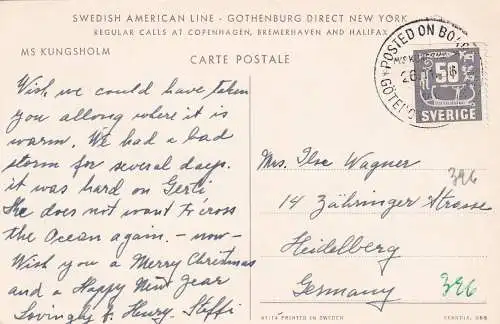 SWEDISH AMERICAN LINE - GOTHENBURG DIRECT NEW YORK
REGULAR CALLS AT COPENHAGEN, BREMERHAVEN AND HALIFAX
MS KUNGSHOLM
CARTE POSTALE
POSTED ON BO
GÖTEBO
50
SVERIGE
Wish we could have taken
you allong where it is
warm. We had a bad
storm for several days.
it was hard on Gerti
She does not want to cross
the Ocean again. - now -
Wish you a Merry Christmas
and a Happy New Year
Lovingly Henry - Steffi
Mrs. Ilse Wagner
396
14 Zähringer Strasse
Heidelberg
Germany
396
PRINTED IN SWEDEN